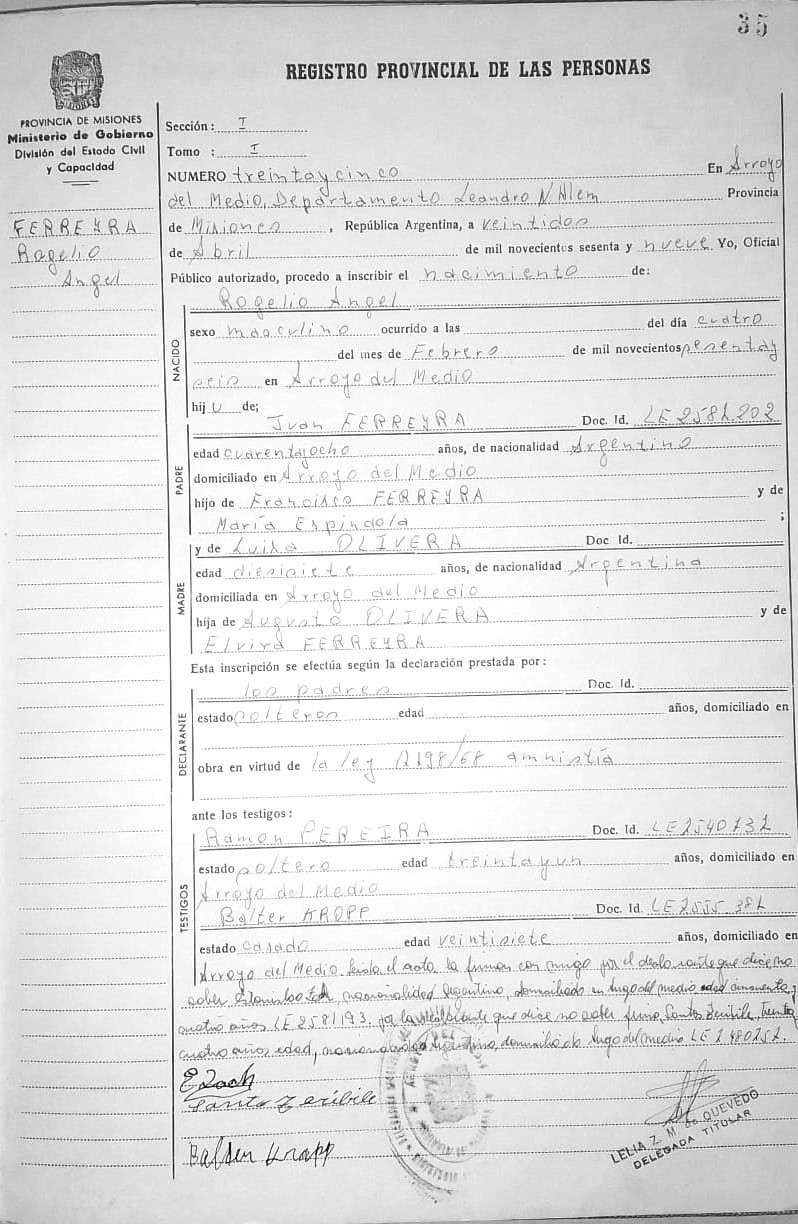 35
REGISTRO PROVINCIAL DE LAS PERSONAS
PROVINCIA DE MISIONES
Ministerio de Gobierno
División del Estado Civil
y Capacidad
FERREYRA
Rogelio
Angel
Sección: I
Tomo : I
NUMERO treintaycinco En Arroyo
del Medio, Departamento Leandro N Alem Provincia
de Misiones, República Argentina, a veintidos
de Abril de mil novecientos sesenta y nueve Yo, Oficial
Público autorizado, procedo a inscribir el nacimiento de:
NACIDO
Rogelio Angel
sexo masculino ocurrido a las del día cuatro
del mes de Febrero de mil novecientos sesentay
seis en Arroyo del Medio
hij o de;
PADRE
Juan FERREYRA Doc. Id. LE 2581.202
edad cuarentayocho años, de nacionalidad Argentino
domiciliado en Arroyo del Medio
hijo de Francisco FERREYRA y de
María Espindola ;
MADRE
y de Luisa OLIVERA Doc. Id.
edad diesisiete años, de nacionalidad Argentina
domiciliada en Arroyo del Medio
hija de Augusto OLIVERA y de
Elvira FERREYRA
Esta inscripción se efectúa según la declaración prestada por:
DECLARANTE
los padres Doc. Id.
estado solteros edad años, domiciliado en
obra en virtud de la ley /68 amnistía
ante los testigos:
TESTIGOS
Ramon PEREIRA Doc. Id. LE
estado soltero edad treintayun años, domiciliado en
Arroyo del Medio
Balter KROPP Doc. Id. LE 2555.381
estado casado edad veintisiete años, domiciliado en
Arroyo del Medio. Leida el acta la firman con migo por el declarante que dice no
saber nacionalidad Argentino, domiciliado en del medio edad cincuenta y
cuatro años LE 2581193. por la declarante que dice no saber firma Santos treinta
cuatro años edad, nacionalidad Argentino, domicilio del medio LE
Santo
LELIA Z. M. de QUEVEDO
DELEGADA TITULAR